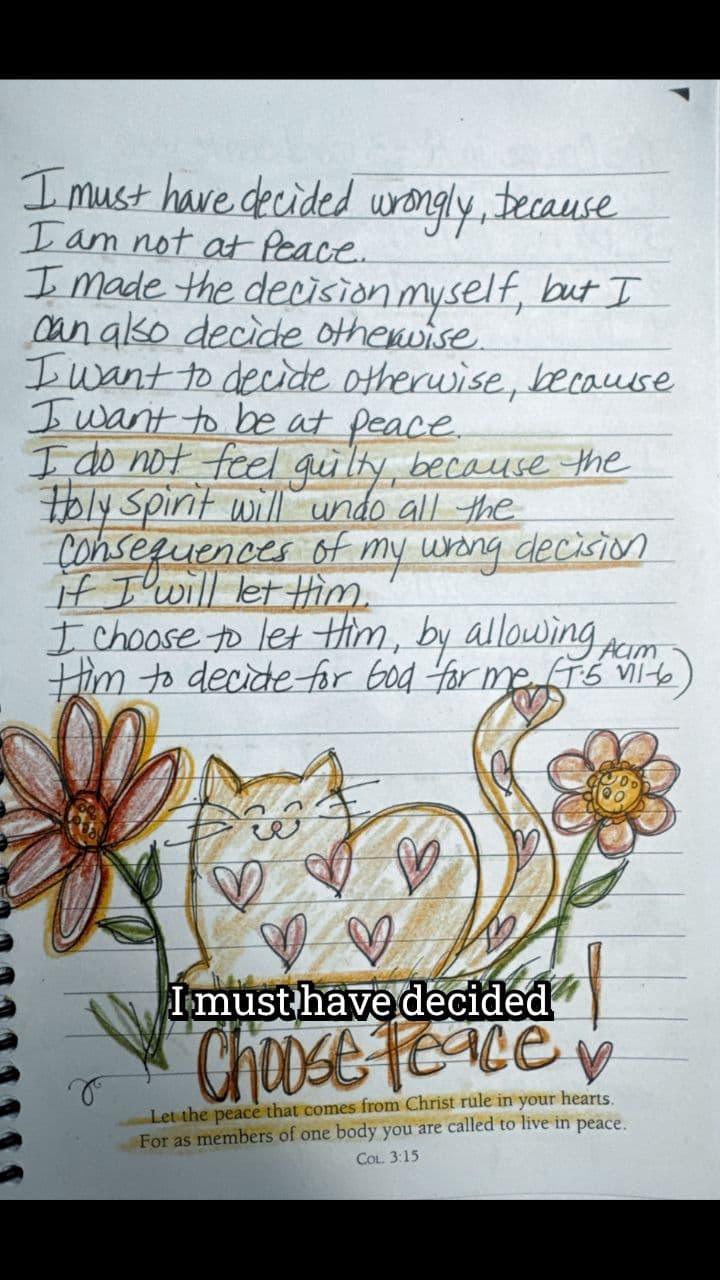 I must have decided wrongly, because
I am not at Peace.
I made the decision myself, but I
can also decide otherwise.
I want to decide otherwise, because
I want to be at peace.
I do not feel guilty, because the
Holy Spirit will undo all the
Consequences of my wrong decision
if I will let Him.
I choose to let Him, by allowing
Him to decide for God for me. (T-5 VII-6)
Acim
I must have decided
Choose Peace!
Let the peace that comes from Christ rule in your hearts.
For as members of one body you are called to live in peace.
COL. 3:15